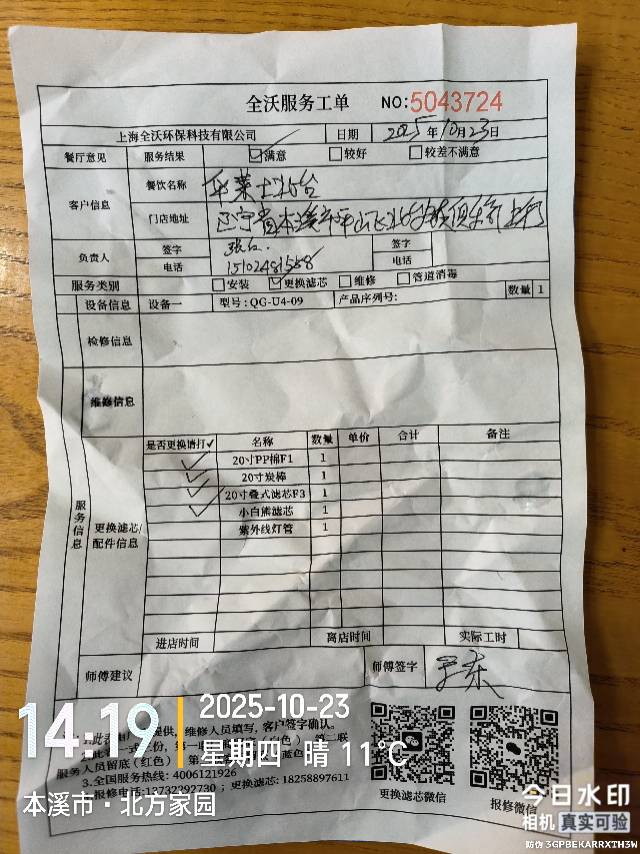 全沃服务工单 NO:5043724
上海全沃环保科技有限公司 日期 2025年10月23日
餐厅意见 服务结果 ☑满意 □较好 □较差不满意
客户信息 餐饮名称 华莱士
门店地址 辽宁省本溪市平山
负责人 签字 签字
电话 15102481558 电话
服务类别 □安装 ☑更换滤芯 □维修 □管道消毒
设备信息 设备一 型号:QG-U4-09 产品序列号: 数量 1
检修信息
维修信息
服务信息
更换滤芯/配件信息
是否更换请打✓ 名称 数量 单价 合计 备注
✓ 20寸PP棉F1 1
✓ 20寸炭棒 1
✓ 20寸叠式滤芯F3 1
✓ 小白熊滤芯 1
紫外线灯管 1
进店时间 离店时间 实际工时
师傅建议 师傅签字
提供,维修人员填写,客户签字确认。
服务人员留底(红色)
3.全国服务热线:4006121926
报修电话:13732292730 ;更换滤芯:18258897611
更换滤芯微信 报修微信
14:19 2025-10-23
星期四 晴 11°C
本溪市·北方家园
今日水印
相机 真实可验
防伪 3GPBEKARRXTH3W